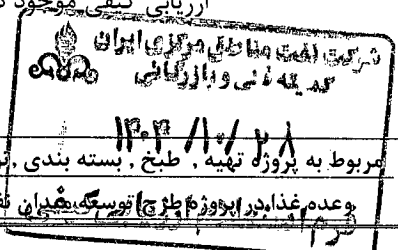 ارزیابی کیفی موجود د
شرکت نفت مناطق مرکزی ایران
کمیته فنی و بازرگانی
۱۴۰۳/۱۰/۲۸
مربوط به پروژه تهیه , طبخ , بسته بندی ,
وعده غذا در پروژه طرح توسعه میدان نف